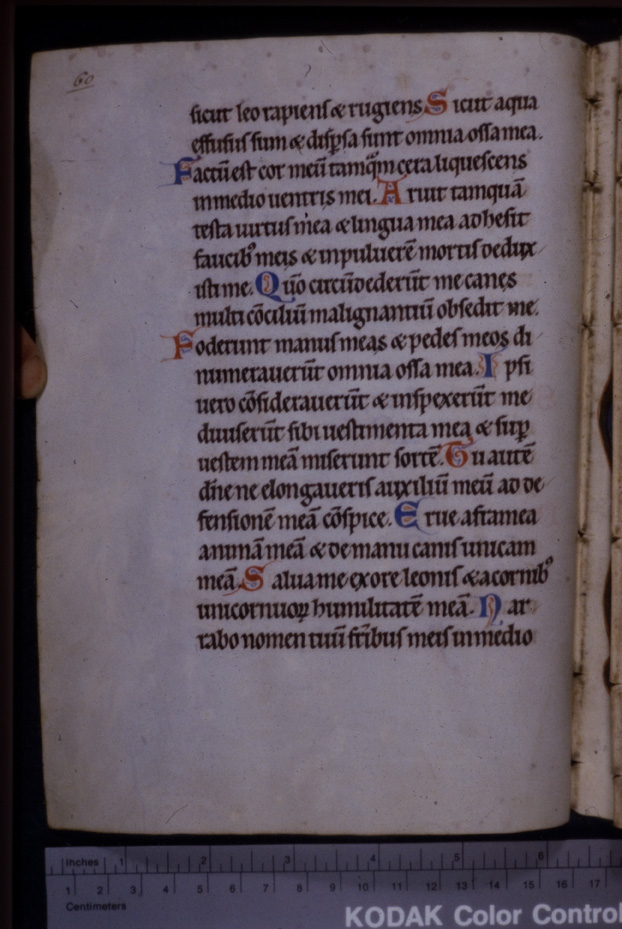 60
sicut leo rapiens & rugiens S icut aqua
effusus sum & disp̲sa sunt omnia ossa mea.
F actū est cor meū tamq̄m cera liquescens
inmedio uentris mei. A ruit tamquā
testa uirtus mea & lingua mea adhesit
faucib⁹ meis & inpuluerē mortis dedux
isti me. Q uō circūdederūt me canes
multi cōciliū malignantiū obsedit me.
F oderunt manus meas & pedes meos di
numerauerūt omnia ossa mea. I psi
uero cōsiderauerūt & inspexerūt me
diuiserūt sibi uestimenta mea & sup̲
uestem meā miserunt sortē. T u autē
dn̄e ne elongaueris auxiliū meū ad de
fensionē meā cōspice. E rue aframea
animā meā & de manu canis unicam
meā. S alua me exore leonis & acornib⁹
unicornuoꝝ humilitatē meā. N ar
rabo nomen tuū fr̄ibus meis inmedio
Inches 1 2 3 4 5 6
1 2 3 4 5 6 7 8 9 10 11 12 13 14 15 16 17
Centimeters
KODAK Color Control